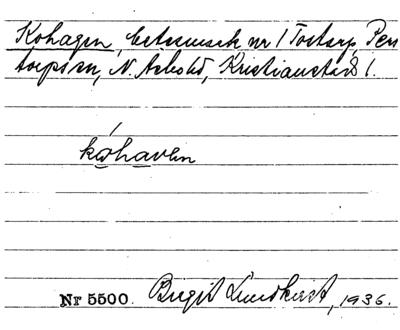 Kohagen, betesmark nr 1 Tostarp, Per
torps sn, N. Åsbohd, Kristianstads l.
kohaven
Nr 5500. Birgit Lundkvist, 1936.